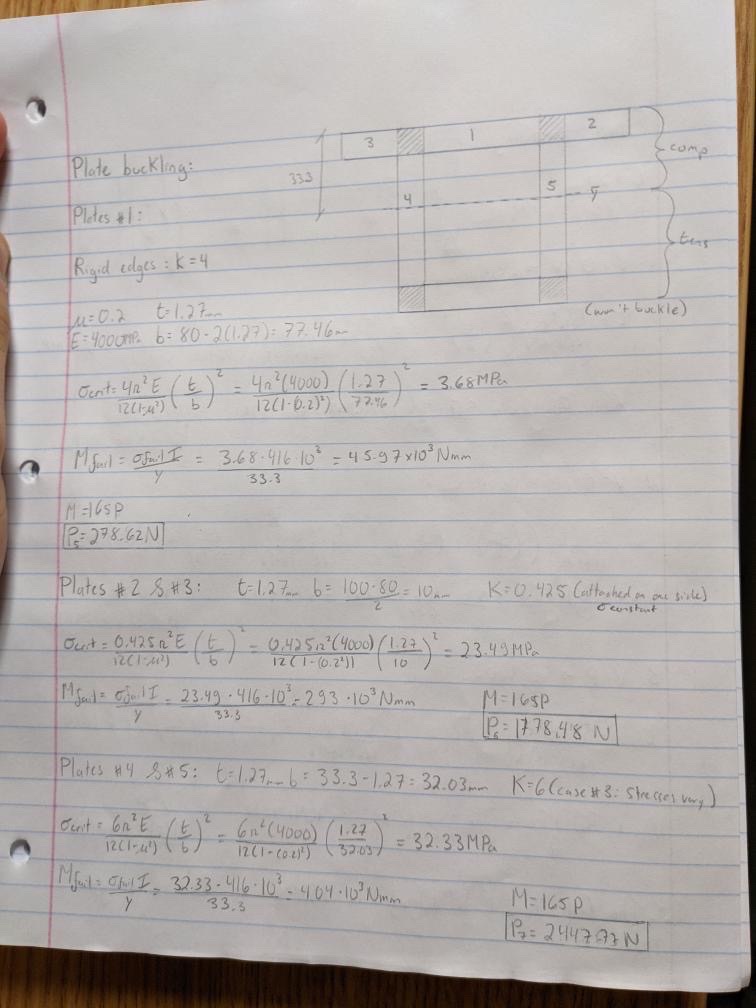 3 1 2
comp
Plate buckling:
33.3
4 5 y̅
Plates #1:
tens
Rigid edges: K=4
(won't buckle)
μ=0.2 t=1.27mm
E=4000MPa b=80-2(1.27)=77.46mm
σcrit=4π²E/12(1-μ²) (t/b)² = 4π²(4000)/12(1-(0.2)²) (1.27/77.46)² = 3.68MPa
Mfail=σfail I/y = 3.68·416·10³/33.3 = 45.97×10³Nmm
M=165P
P₅=278.62N
Plates #2 & #3: t=1.27mm b=100-80/2=10mm K=0.425 (attached on one side)
σ constant
σcrit=0.425π²E/12(1-μ²) (t/b)² = 0.425π²(4000)/12(1-(0.2²)) (1.27/10)² = 23.49MPa
Mfail=σfail I/y = 23.49·416·10³/33.3 = 293·10³Nmm M=165P
P₆=1778.48 N
Plates #4 & #5: t=1.27mm b=33.3-1.27=32.03mm K=6 (case #3: stresses vary)
σcrit=6π²E/12(1-μ²) (t/b)² = 6π²(4000)/12(1-(0.2)²) (1.27/32.03)² = 32.33MPa
Mfail=σfail I/y = 32.33·416·10³/33.3 = 404·10³Nmm M=165P
P₇=2447.77N